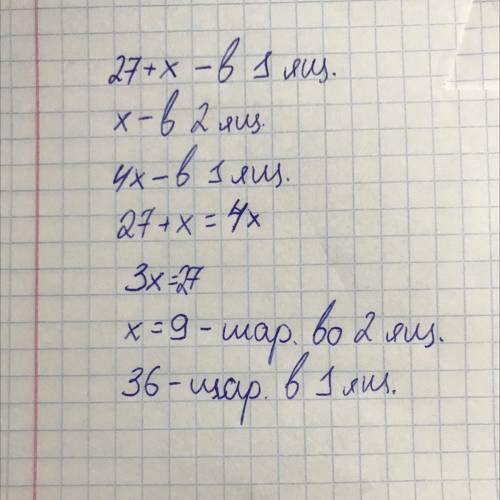 27+x - в 1 ящ.
x - в 2 ящ.
4x - в 1 ящ.
27+x=4x
3x=27
x=9 - шар. во 2 ящ.
36 - шар. в 1 ящ.